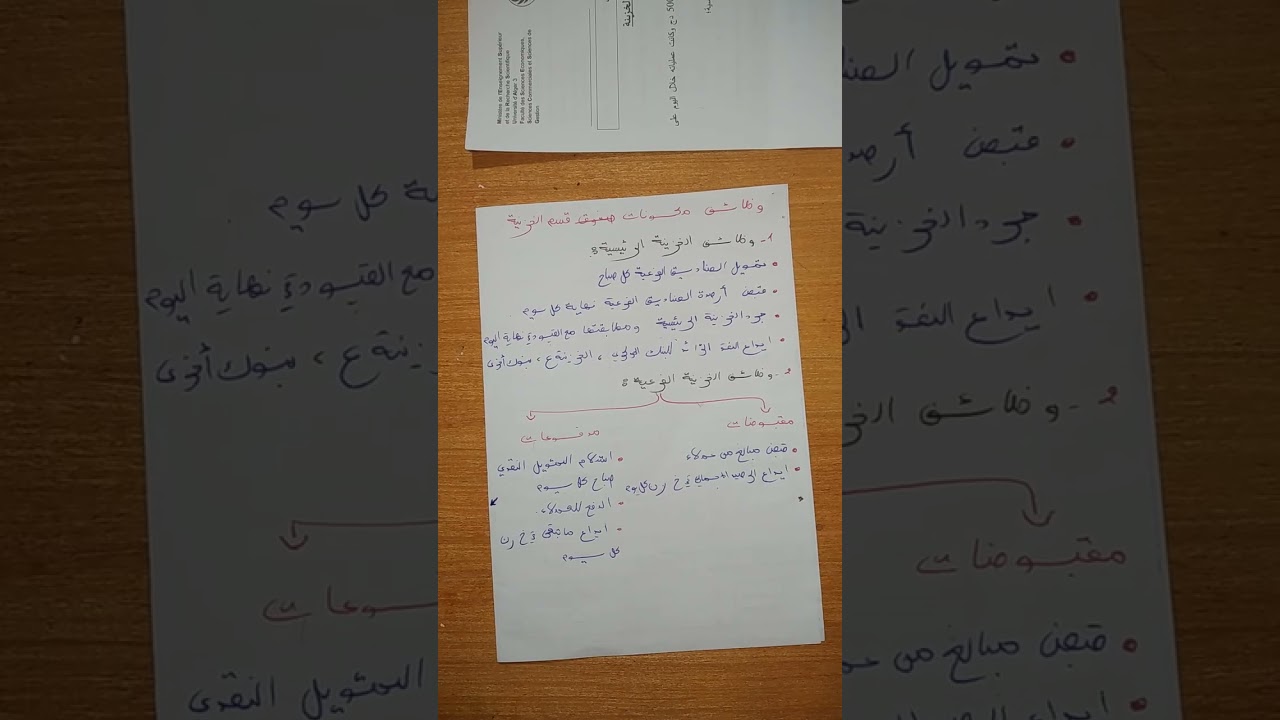 Ministère de l'Enseignement Supérieur
et de la Recherche Scientifique
Université d'Alger 3
Faculté des Sciences Economiques,
Sciences Commerciales et Sciences de
Gestion
الخزينة
500 دج وكانت عملياته خلال اليوم على
وظائف مكونات قسم الخزينة
1- وظائف الخزينة الرئيسية:
• تمويل الصناديق الفرعية كل صباح
• قبض أرصدة الصناديق الفرعية نهاية كل يوم
• جرد الخزينة الرئيسية ومطابقتها مع القيود نهاية اليوم
• ايداع النقد الزائد للبنك المركزي، الخزينة ع، بنوك أخرى
2- وظائف الخزينة الفرعية:
مقبوضات
• قبض مبالغ من عملاء
• ايداع الرصيد الاجمالي في خ ر ن كل يوم
مدفوعات
• استلام التمويل النقدي
صباح كل يوم
• الدفع للعملاء
• ايداع ما تبقى في خ ر ن
كل يوم